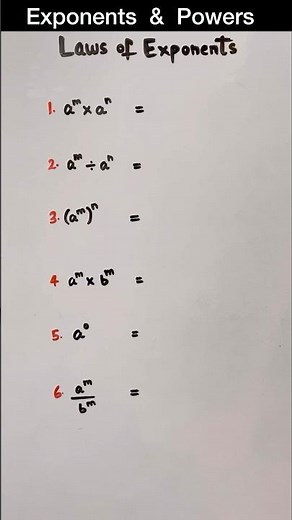 Exponents & Powers
Laws of Exponents
1. aᵐ × aⁿ =
2. aᵐ ÷ aⁿ =
3. (aᵐ)ⁿ =
4 aᵐ × bᵐ =
5. a⁰ =
6. aᵐ/bᵐ =